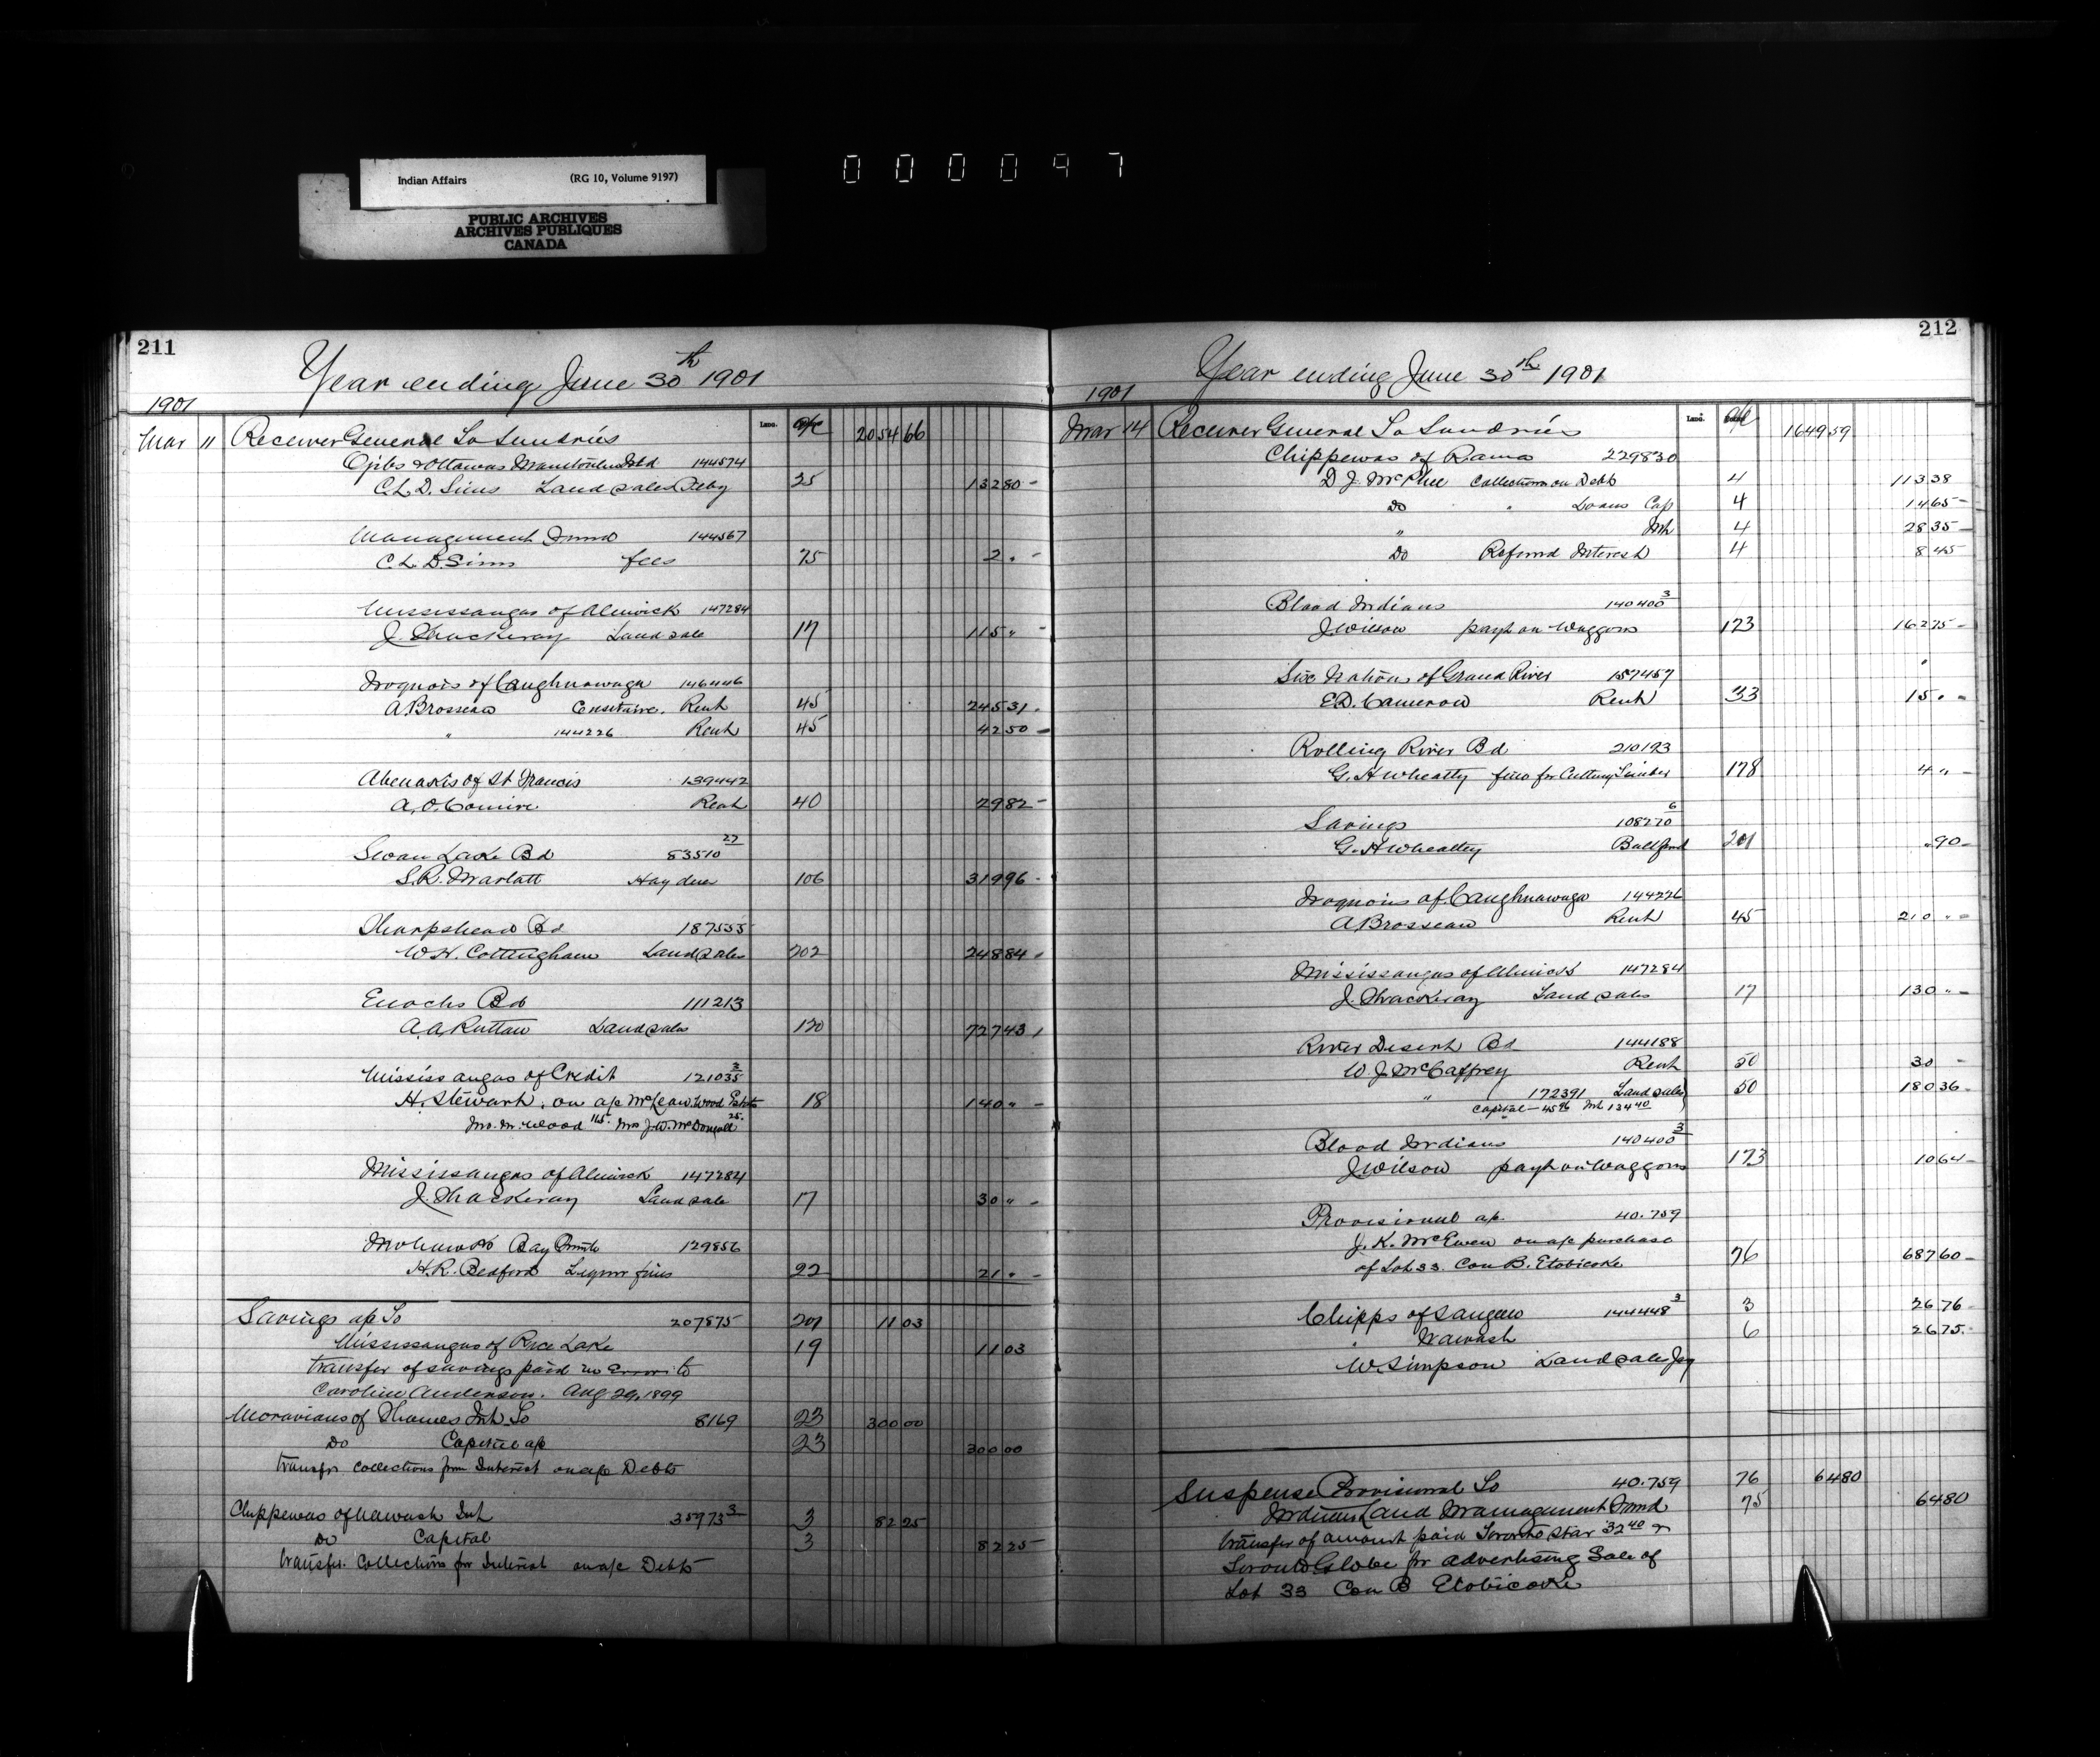 Indian Affairs (RG 10, Volume 9197)
PUBLIC ARCHIVES
ARCHIVES PUBLIQUES
CANADA
000097
211
Year ending June 30th 1901
1901
Mar 11 Receiver General To Sundries a/c 2054 66
Ojibs & Ottawas Manitoulin Isld 144574
C.L.D. Sims Land sales 25 132 80 -
Management Fund 144567
C.L.D. Sims fees 75 2 " -
Mississaugas of Alnwick 147284
J. Thackeray Land sale 17 115 " -
Iroquois of Caughnawaga 146446
A Brosseau Censitaire. Rent 45 245 31 -
" 144226 Rent 45 42 50 -
Abenakis of St Francis 139442
A.O. Comire Rent 40 29 82 -
Swan Lake Bd 83510 27
S.R. Marlatt Hay dues 106 319 96 -
Sharpshead Bd 187535
W.H. Cottingham Land sales 202 248 84 -
Enochs Bd 111213
A.A. Ruttan Land sales 120 727 43
Mississaugas of Credit 121035 2
H. Stewart, on a/c McLean Wood Estate 18 140 " -
Jno. M. Wood 115. Mrs J.W. McDougall 25.
Mississaugas of Alnwick 147284
J. Thackeray Land sale 17 30 " -
Mohawks Bay Quinte 129856
H.R. Bedford Liquor fines 22 21 " -
Savings a/c To 207875 201 11 03
Mississaugas of Rice Lake 19 11 03
transfer of savings paid in Error to
Caroline Anderson. Aug 29, 1899
Moravians of Thames Int To 8169 23 300 00
Do Capital a/c 23 300 00
transfr collections from Interest on a/c Debts
Chippewas of Nawash Int 35973 3 3 82 25
Do Capital 3 82 25
transfer. Collections for Interest on a/c Debts
212
Year ending June 30th 1901
1901
Mar 14 Receiver General To Sundries a/c 1649 59
Chippewas of Rama 229830
D J. McPhee Collections on Debts 4 113 38
Do " Loans Cap 4 14 65 -
" Int 4 28 35 -
Do Refund Interest 4 8 45
Blood Indians 140400 3
J Wilson payt on Waggons 173 162 75 -
Six Nations of Grand River 157457
E.D. Cameron Rent 33 15 " -
Rolling River Bd 210193
G.H Wheatly fine for Cutting Timber 178 4 " -
Savings 108270 6
G.H Wheatley 201 " 90 -
Iroquois of Caughnawaga 144226
A Brosseau Rent 45 210 " -
Mississaugas of Alnwick 147284
J. Thackeray Land sales 17 130 " -
River Desert Bd 144188
W. J McCaffrey Rent 50 30 -
" 172391 Land sales 50 180 36 -
Capital - 45 96 Int 134 40
Blood Indians 140400 3
J Wilson payt on Waggons 173 10 64 -
Provisional a/c 40.759
J. K. McEwen on a/c purchase
of Lot 33. Con B. Etobicoke 76 687 60 -
Chipps of Saugeen 144448 3 3 26 76
" Nawash 6 26 75.
W. Simpson Land sales
Suspense Provisional To 40.759 76 64 80
Indian Land Management Fund 75 64 80
transfer of amount paid Toronto Star 32 40 &
Toronto Globe for advertising Sale of
Lot 33 Con B Etobicoke